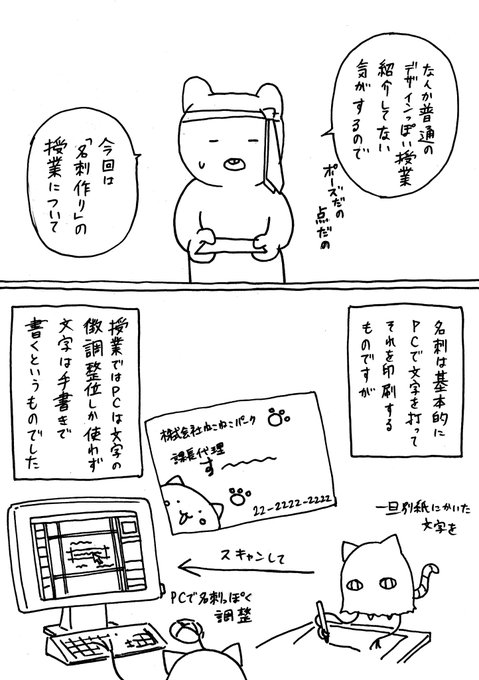 なんか普通の
デザインっぽい授業
紹介してない
気がするので
ポーズだの
点だの
今回は
「名刺作り」の
授業について
名刺は基本的に
PCで文字を打って
それを印刷する
ものですが
授業ではPCは文字の
微調整位しか使わず
文字は手書きで
書くというものでした
株式会社ねこねこパーク
課長代理
す
22-2222-2222
一旦別紙にかいた
文字を
スキャンして
PCで名刺っぽく
調整